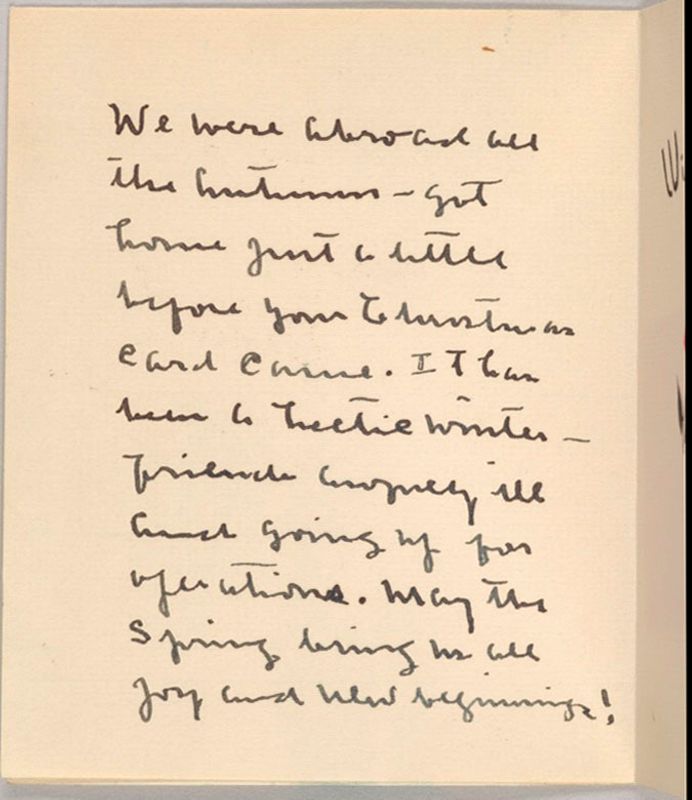 We were abroad all
the Autumn - got
home just a little
before your Christmas
card came. It has
been a hectic winter -
friends awfully ill
and going up for
operations. May the
Spring bring us all
joy and new beginnings!